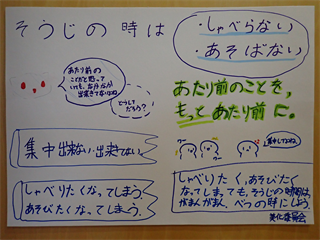 そうじの時は
・しゃべらない
・あそばない
あたり前の
ことだと思って
いても、なかなか
出来てないよね
どうして
だろう？
あたり前のことを、
もっとあたり前に。
集中出来ない・出来てない。
しゃべりたくなってしまう。
あそびたくなってしまう。
しゃべりたく、あそびたく
なってしまっても、そうじの時間は
がまんがまん。べつの時にしよう。
美化委員会